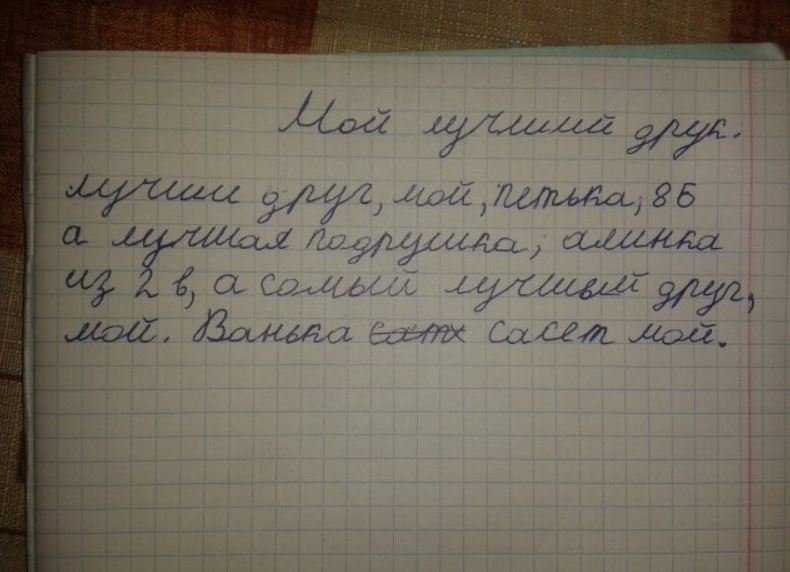 Мой лучший друк.
лучши друг, мой, петька, 8Б
а лучшая подрушка, алинка
из 2 в, а сомый лучшый друг,
мой. Ванька сасет мой.